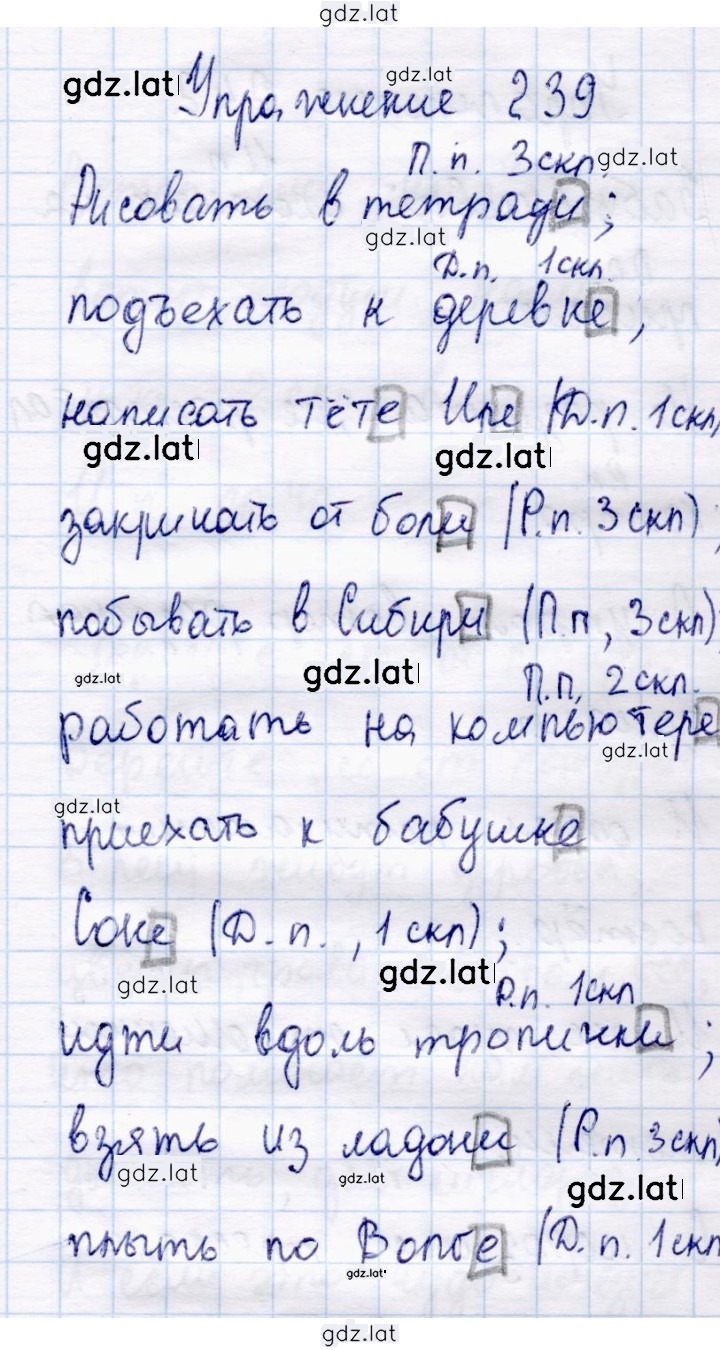 gdz.lat
gdz.lat
gdz.lat
Упражнение 239
П.п. 3скл.
gdz.lat
Рисовать в тетради;
gdz.lat
Д.п. 1скл.
подъехать к деревне,
написать тёте Ире (Д.п. 1скл)
gdz.lat
gdz.lat
закричать от боли (Р.п. 3скл),
побывать в Сибири (П.п, 3скл);
gdz.lat
gdz.lat
П.п, 2скл.
работать на компьютере
gdz.lat
gdz.lat
приехать к бабушке
Соне (Д.п., 1скл);
gdz.lat
gdz.lat
Р.п. 1скл
идти вдоль тропинки;
взять из ладони (Р.п. 3скл)
gdz.lat
gdz.lat
gdz.lat
плыть по Волге (Д.п. 1скл
gdz.lat
gdz.lat